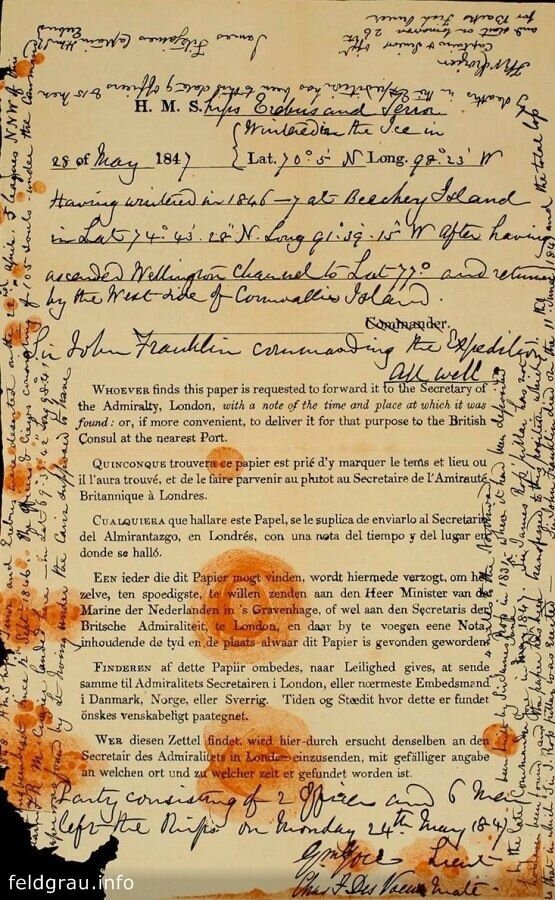 H. M. S. hips Erebus and Terror
Wintered in the Ice in
28 of May 1847 Lat. 70°5' N Long. 98°23' W
Having wintered in 1846-7 at Beechey Island
in Lat 74°43'28" N. Long 91°39'15" W after having
ascended Wellington Channel to Lat 77° and returned
by the West side of Cornwallis Island.
Commander.
Sir John Franklin commanding the Expedition
All well
WHOEVER finds this paper is requested to forward it to the Secretary of
the Admiralty, London, with a note of the time and place at which it was
found: or, if more convenient, to deliver it for that purpose to the British
Consul at the nearest Port.
QUINCONQUE trouvera ce papier est prié d'y marquer le tems et lieu ou
il l'aura trouvé, et de le faire parvenir au plutot au Secretaire de l'Amirauté
Britannique à Londres.
CUALQUIERA que hallare este Papel, se le suplica de enviarlo al Secretario
del Almirantazgo, en Londrés, con una nota del tiempo y del lugar en
donde se halló.
EEN ieder die dit Papier mogt vinden, wordt hiermede verzogt, om het
zelve, ten spoedigste, te willen zenden aan den Heer Minister van de
Marine der Nederlanden in 's Gravenhage, of wel aan den Secretaris der
Britsche Admiraliteit, te London, en daar by te voegen eene Nota,
inhoudende de tyd en de plaats alwaar dit Papier is gevonden geworden
FINDEREN af dette Papiir ombedes, naar Leilighed gives, at sende
samme til Admiralitets Secretairen i London, eller nœrmeste Embedsmand
i Danmark, Norge, eller Sverrig. Tiden og Stædit hvor dette er fundet
önskes venskabeligt paategnet.
WER diesen Zettel findet, wird hier-durch ersucht denselben an den
Secretair des Admiralitets in London einzusenden, mit gefälliger angabe
an welchen ort und zu welcher zeit er gefundet worden ist.
Party consisting of 2 Officers and 6 Men
left the Ships on Monday 24th May 1847
Gm Gore Lieut
Chas F Des Voeux Mate
H.M.Ships Terror and Erebus were deserted on the 22nd April 5 leagues NNW of this
been beset since 12th Sept 1846. The Officers & Crews consisting of 105 souls under the Command
F.R.M. Crozier landed here in Lat 69°37'42" Long 98°41'
paper was found by Lt Irving under the Cairn supposed to have
been built by Sir James Ross in 1831 4 miles to the Northward
where it had been deposited
by the late Commander Gore in June 1847. Sir James Ross' pillar has not
however been found and the paper has been transferred to this position which
is that in which Sir J Ross pillar was erected Sir John Franklin died on the 11th June 1847 and the total loss
by deaths in the Expedition has been to this date 9 officers & 15 men
James Fitzjames Captain HMS Erebus
Captain & Senior Offr
and start on tomorrow 26th
for Backs Fish River
feldgrau.info